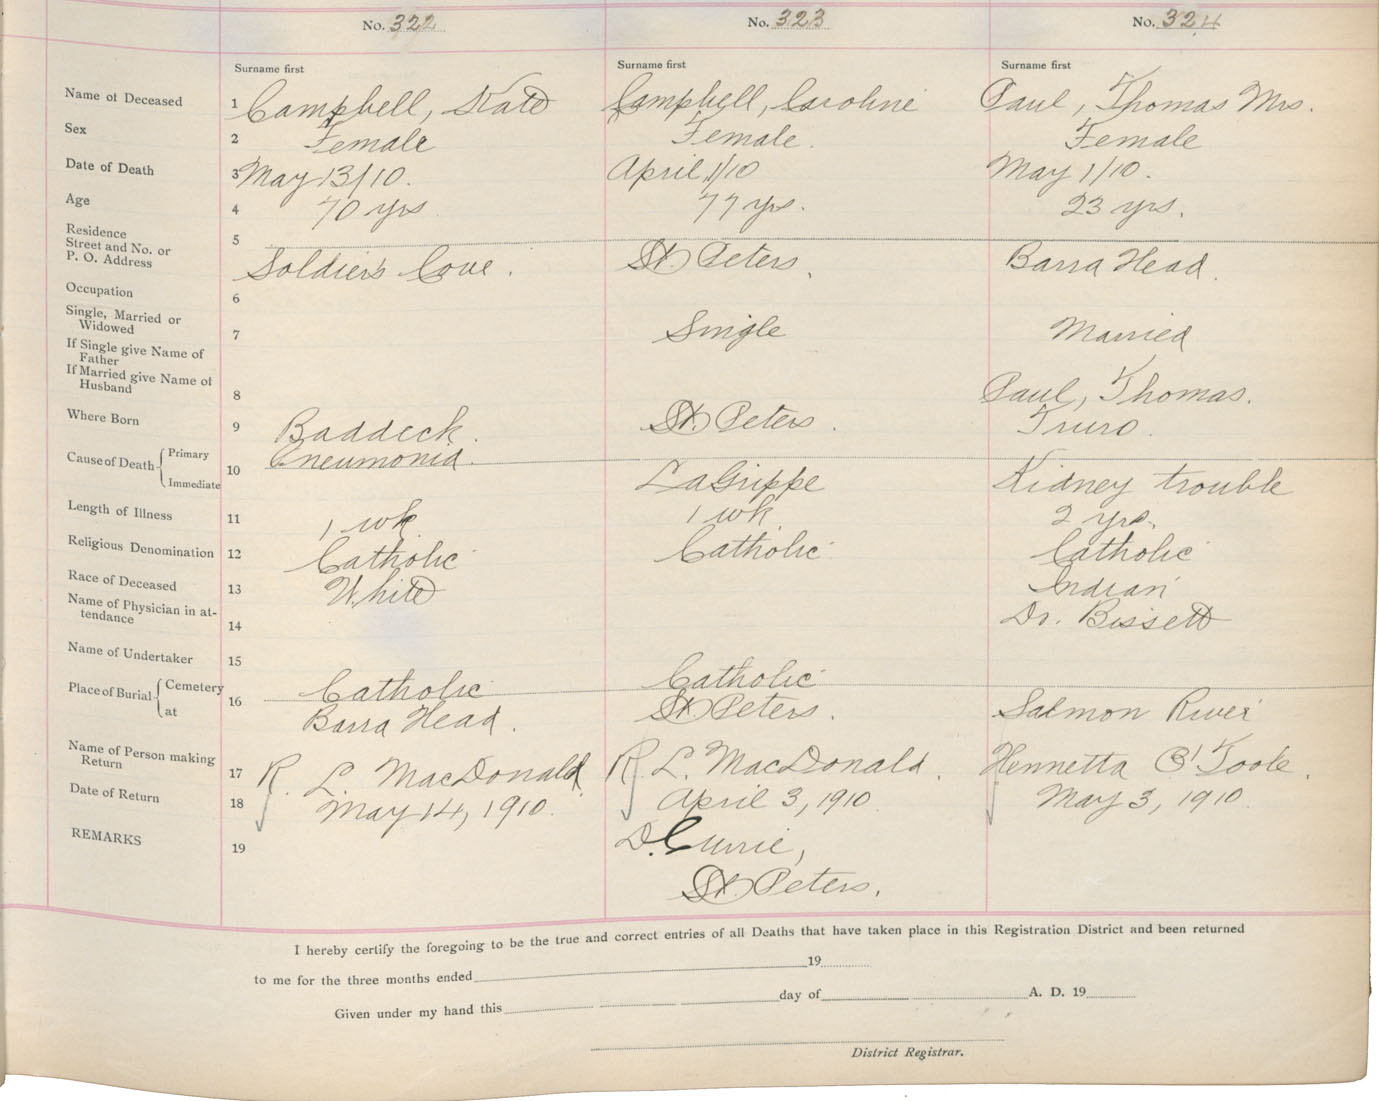 No. 322 No. 323 No. 324
Surname first Surname first Surname first
Name of Deceased 1 Campbell, Kate Campbell, Caroline Paul, Thomas Mrs.
Sex 2 Female Female. Female
Date of Death 3 May 13/10. April 1/10 May 1/10.
Age 4 70 yrs 77 yrs. 23 yrs.
Residence
Street and No. or 5
P. O. Address Soldier's Cove. St. Peters. Barra Head.
Occupation 6
Single, Married or
Widowed 7 Single Married
If Single give Name of
Father
If Married give Name of
Husband 8 Paul, Thomas.
Where Born 9 Baddeck. St. Peters. Truro.
Cause of Death Primary Pneumonia.
10 LaGrippe Kidney trouble
Immediate
Length of Illness 11 1 wk 1 wk. 2 yrs.
Religious Denomination 12 Catholic Catholic Catholic
Race of Deceased 13 White Indian
Name of Physician in at-
tendance 14 Dr. Bissett
Name of Undertaker 15
Place of Burial Cemetery Catholic Catholic
at 16 Barra Head. St. Peters. Salmon River
Name of Person making
Return 17 R. L. MacDonald. R. L. MacDonald. Hennetta O'Toole.
Date of Return 18 May 14, 1910. April 3, 1910. May 3, 1910.
REMARKS 19 D. Currie,
St. Peters.
I hereby certify the foregoing to be the true and correct entries of all Deaths that have taken place in this Registration District and been returned
to me for the three months ended 19
Given under my hand this day of A. D. 19
District Registrar.